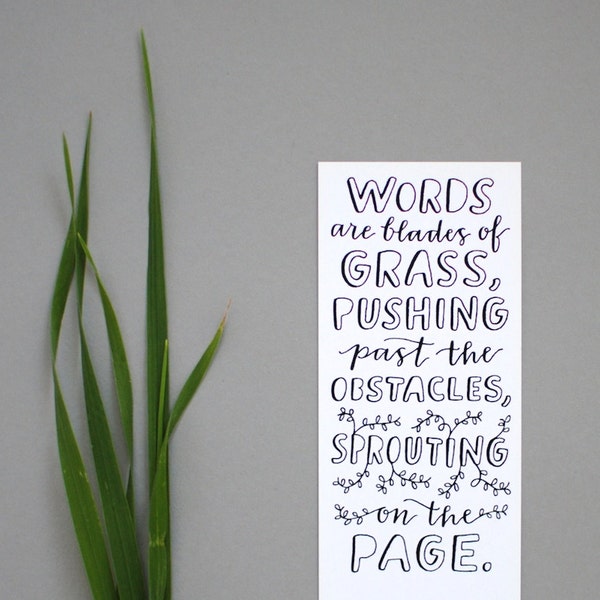 WORDS
are blades of
GRASS,
PUSHING
past the
OBSTACLES,
SPROUTING
on the
PAGE.